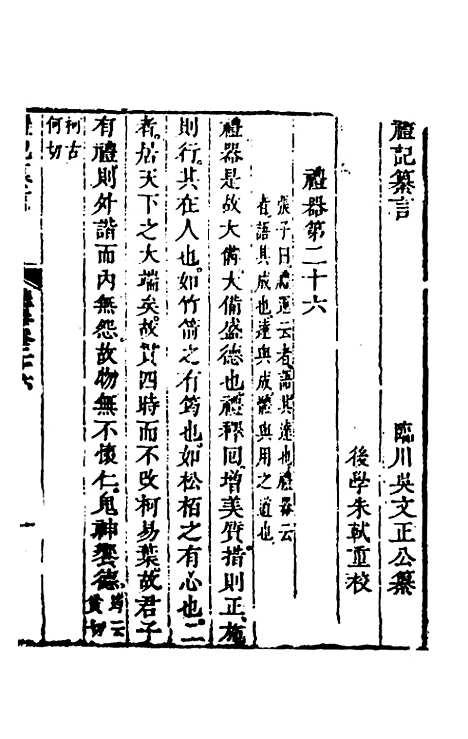 禮記纂言
臨川吳文正公纂
後學朱軾重校
禮器第二十六
張子曰禮運云者語其達也禮器云
者語其成也達與成體與用之道也
禮器是故大備大備盛德也禮釋回增美質措則正施
則行其在人也如竹箭之有筠也如松栢之有心也二
者居天下之大端矣故貫四時而不改柯易葉故君子
有禮則外諧而內無怨故物無不懷仁鬼神饗德筠云
貧切
柯古
何切